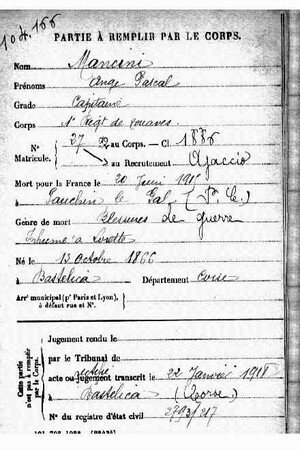 104.166
PARTIE À REMPLIR PAR LE CORPS.
Nom Mancini
Prénoms Ange Pascal
Grade Capitaine
Corps 1er Regt de Zouaves
N° Matricule. 27 au Corps. — Cl 1886
au Recrutement Ajaccio
Mort pour la France le 20 Juin 191
à (P. C.)
Genre de mort Blessures de Guerre
Inhumé à Lorette
Né le 13 Octobre 1866
à Bastelica Département Corse
Arrt municipal (pr Paris et Lyon), à défaut rue et N°.
Cette partie n'est pas à remplir par le Corps.
Jugement rendu le
par le Tribunal de
acte ou jugement transcrit le 22 Janvier 1918
à Bastelica (Corse)
N° du registre d'état civil 2793/217